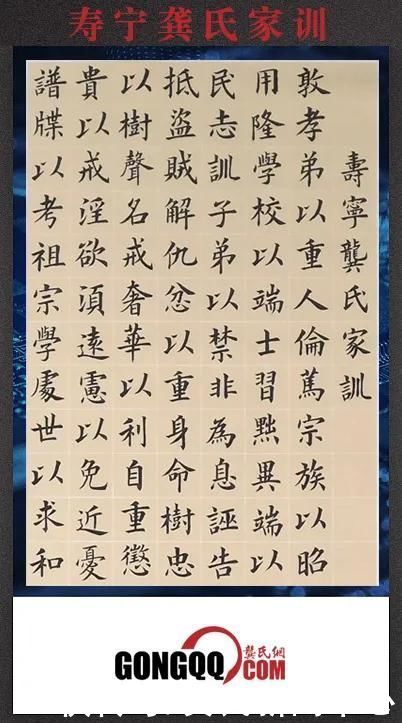 寿宁龚氏家训
壽寧龔氏家訓
敦孝弟以重人倫篤宗族以昭
用隆學校以端士習黜異端以
民志訓子弟以禁非為息誣告
抵盜賊解仇忿以重身命樹忠
以樹聲名戒奢華以利自重懲
貴以戒淫欲湏遠慮以免近憂
譜牒以考祖宗學處世以求和
龔氏網
GONGQQ.COM